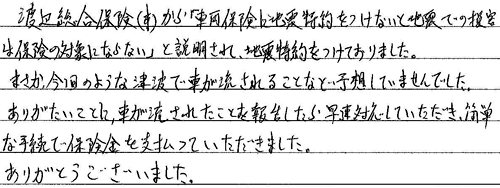 渡辺総合保険(株)から「車両保険に地震特約をつけないと地震での損害
は保険の対象にならない」と説明され、地震特約をつけておりました。
まさか今回のような津波で車が流されることなど予想していませんでした。
ありがたいことに、車が流されたことを報告したら早速対応していただき、簡単
な手続で保険金を支払っていただきました。
ありがとうございました。